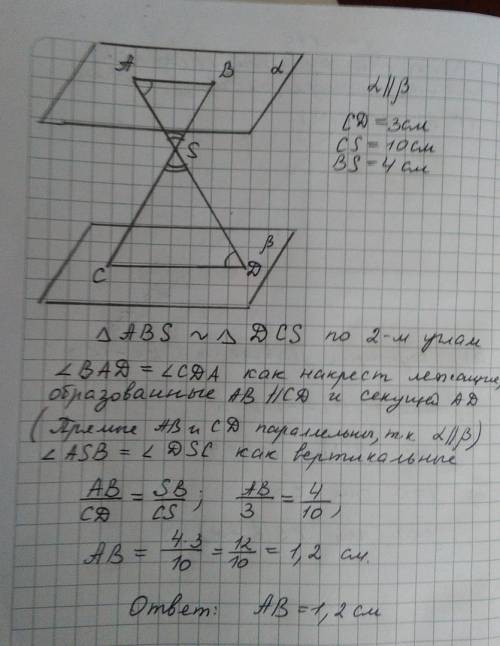 A B α
α∥β
CD = 3см
CS = 10 см
BS = 4 см
S
β
C D
△ ABS ∼ △ DCS по 2-м углам
∠BAD = ∠CDA как накрест лежащие,
образованные AB ∥ CD и секущей AD
(Прямые AB и CD параллельны, т.к α∥β)
∠ASB = ∠DSC как вертикальные
AB/CD = SB/CS; AB/3 = 4/10;
AB = 4·3/10 = 12/10 = 1,2 см.
Ответ: AB = 1,2 см